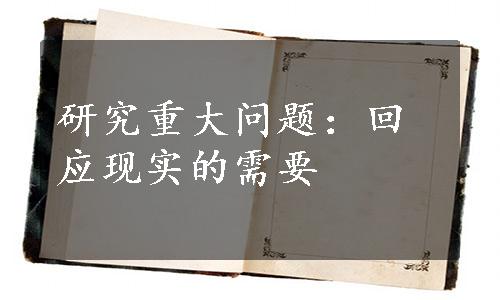 研究重大问题：回
应现实的需要